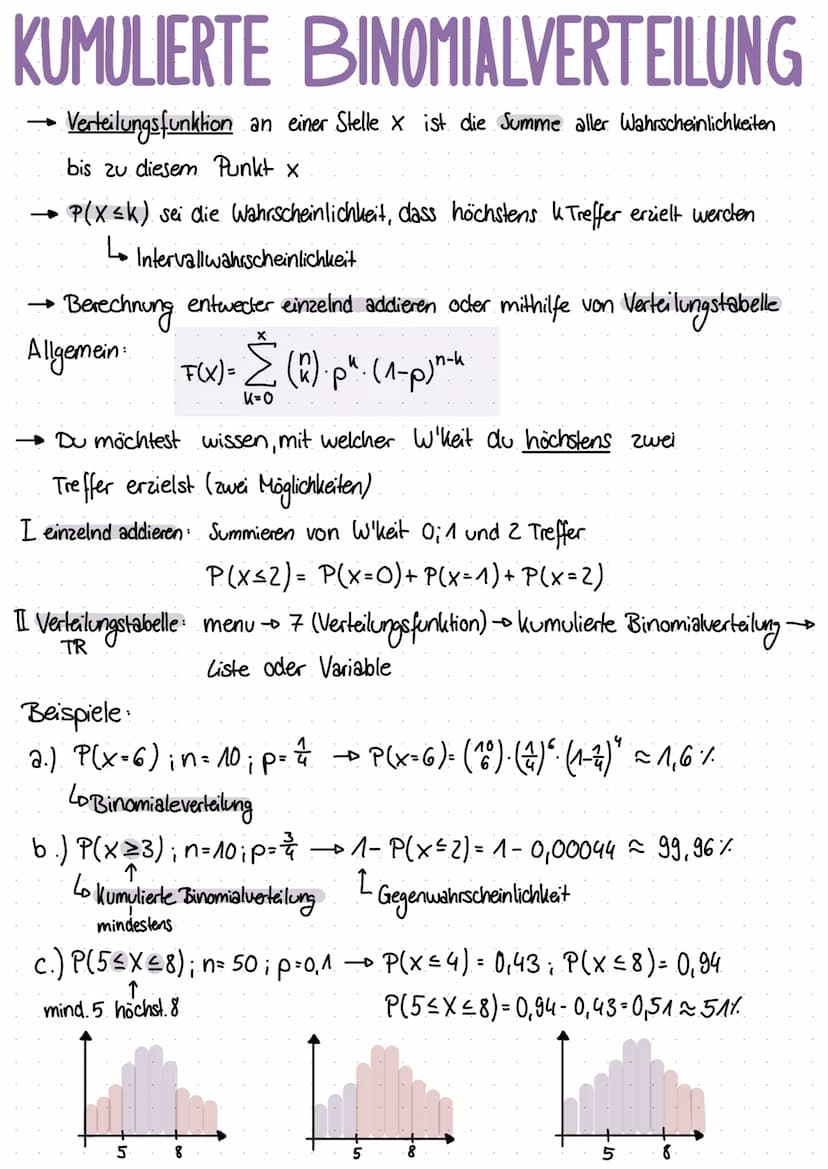 KUMULIERTE BINOMIALVERTEILUNG
→ Verteilungsfunktion an einer Stelle x ist die Summe aller Wahrscheinlichkeiten
bis zu diesem Punkt x
→ P(X≤k) sei die Wahrscheinlichkeit, dass höchstens k Treffer erzielt werden
↳ Intervallwahrscheinlichkeit
→ Berechnung entweder einzelnd addieren oder mithilfe von Verteilungstabelle
Allgemein: F(x)= ∑_{k=0}^{x} (n k) · p^k · (1-p)^{n-k}
→ Du möchtest wissen, mit welcher W'keit du höchstens zwei
Treffer erzielst (zwei Möglichkeiten)
I einzelnd addieren: Summieren von W'keit 0;1 und 2 Treffer
P(x≤2) = P(x=0) + P(x=1) + P(x=2)
II Verteilungstabelle: menu → 7 (Verteilungsfunktion) → kumulierte Binomialverteilung →
TR
Liste oder Variable
Beispiele:
a.) P(x=6); n=10; p=1/4 → P(x=6) = (10 6) · (1/4)^6 · (1-1/4)^4 ≈ 1,6%
↳ Binomialeverteilung
b.) P(x≥3); n=10; p=3/4 → 1- P(x≤2) = 1 - 0,00044 ≈ 99,96%
↑
↳ Kumulierte Binomialverteilung ↑ Gegenwahrscheinlichkeit
mindestens
c.) P(5≤X≤8); n=50; p=0,1 → P(x≤4) = 0,43; P(x≤8) = 0,94
↑
mind. 5 höchst. 8 P(5≤X≤8) = 0,94 - 0,43 = 0,51 ≈ 51%
5 8 5 8 5 8